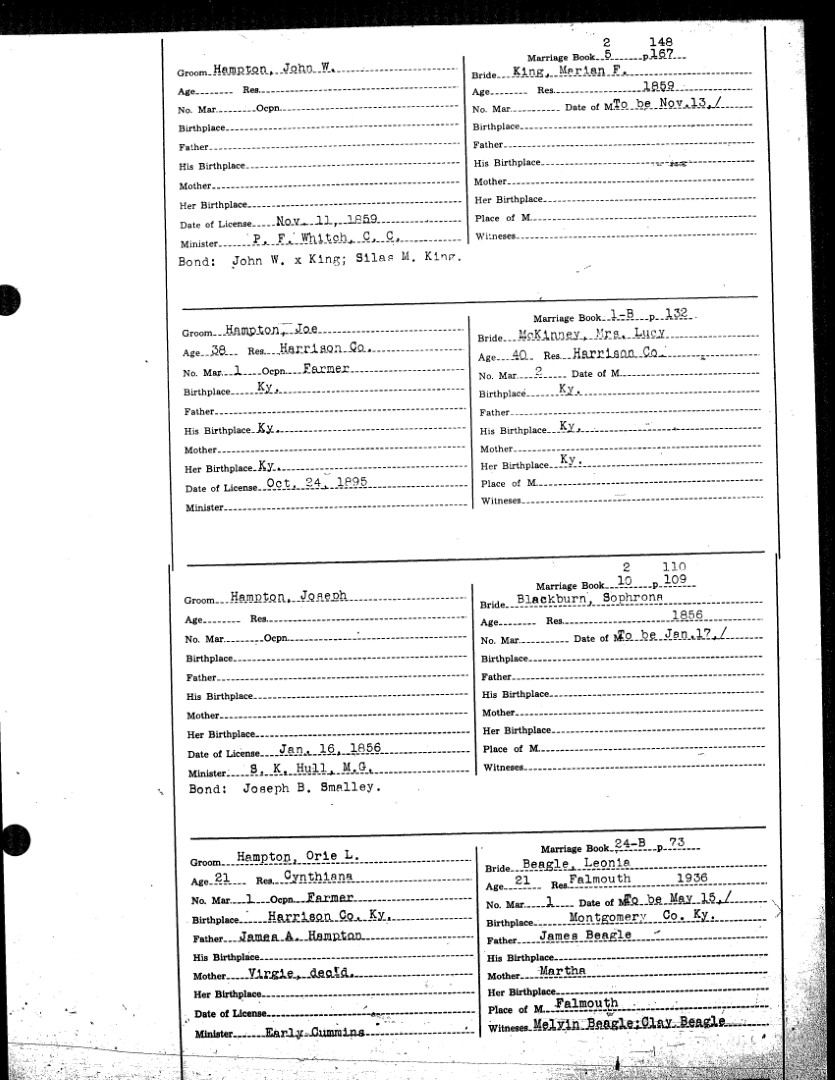 2 148
Marriage Book 5 p.167
Groom Hampton, John W.
Bride King, Marian F.
Age Res.
Age Res. 1859
No. Mar. Ocpn.
No. Mar. Date of M. To be Nov.13,/
Birthplace
Birthplace
Father
Father
His Birthplace
His Birthplace
Mother
Mother
Her Birthplace
Her Birthplace
Date of License Nov. 11, 1859
Place of M.
Minister P. F. Whitch, C. C.
Witnesses
Bond: John W. x King; Silas M. King.
Marriage Book 1-B p. 132
Groom Hampton, Joe
Bride McKinney, Mrs. Lucy
Age 38 Res. Harrison Co.
Age 40 Res Harrison Co.
No. Mar. 1 Ocpn. Farmer
No. Mar 2 Date of M.
Birthplace Ky.
Birthplace Ky.
Father
Father
His Birthplace Ky.
His Birthplace Ky.
Mother
Mother
Her Birthplace Ky.
Her Birthplace Ky.
Date of License Oct. 24, 1895
Place of M.
Minister
Witnesses
2 110
Marriage Book 10 p 109
Groom Hampton, Joseph
Bride Blackburn, Sophrona
Age Res.
Age Res. 1856
No. Mar. Ocpn.
No. Mar. Date of M. To be Jan.17,/
Birthplace
Birthplace
Father
Father
His Birthplace
His Birthplace
Mother
Mother
Her Birthplace
Her Birthplace
Date of License Jan. 16, 1856
Place of M.
Minister S. K. Hull, M.G.
Witnesses
Bond: Joseph B. Smalley.
Marriage Book 24-B p. 73
Groom Hampton, Orie L.
Bride Beagle, Leonia
Age 21 Res. Cynthiana
Age 21 Res Falmouth 1936
No. Mar. 1 Ocpn. Farmer
No. Mar. 1 Date of M. To be May 15,/
Birthplace Harrison Co. Ky.
Birthplace Montgomery Co. Ky.
Father James A. Hampton
Father James Beagle
His Birthplace
His Birthplace
Mother Virgie, dec'd.
Mother Martha
Her Birthplace
Her Birthplace
Date of License
Place of M. Falmouth
Minister Early Cummins
Witnesses Melvin Beagle;Clay Beagle